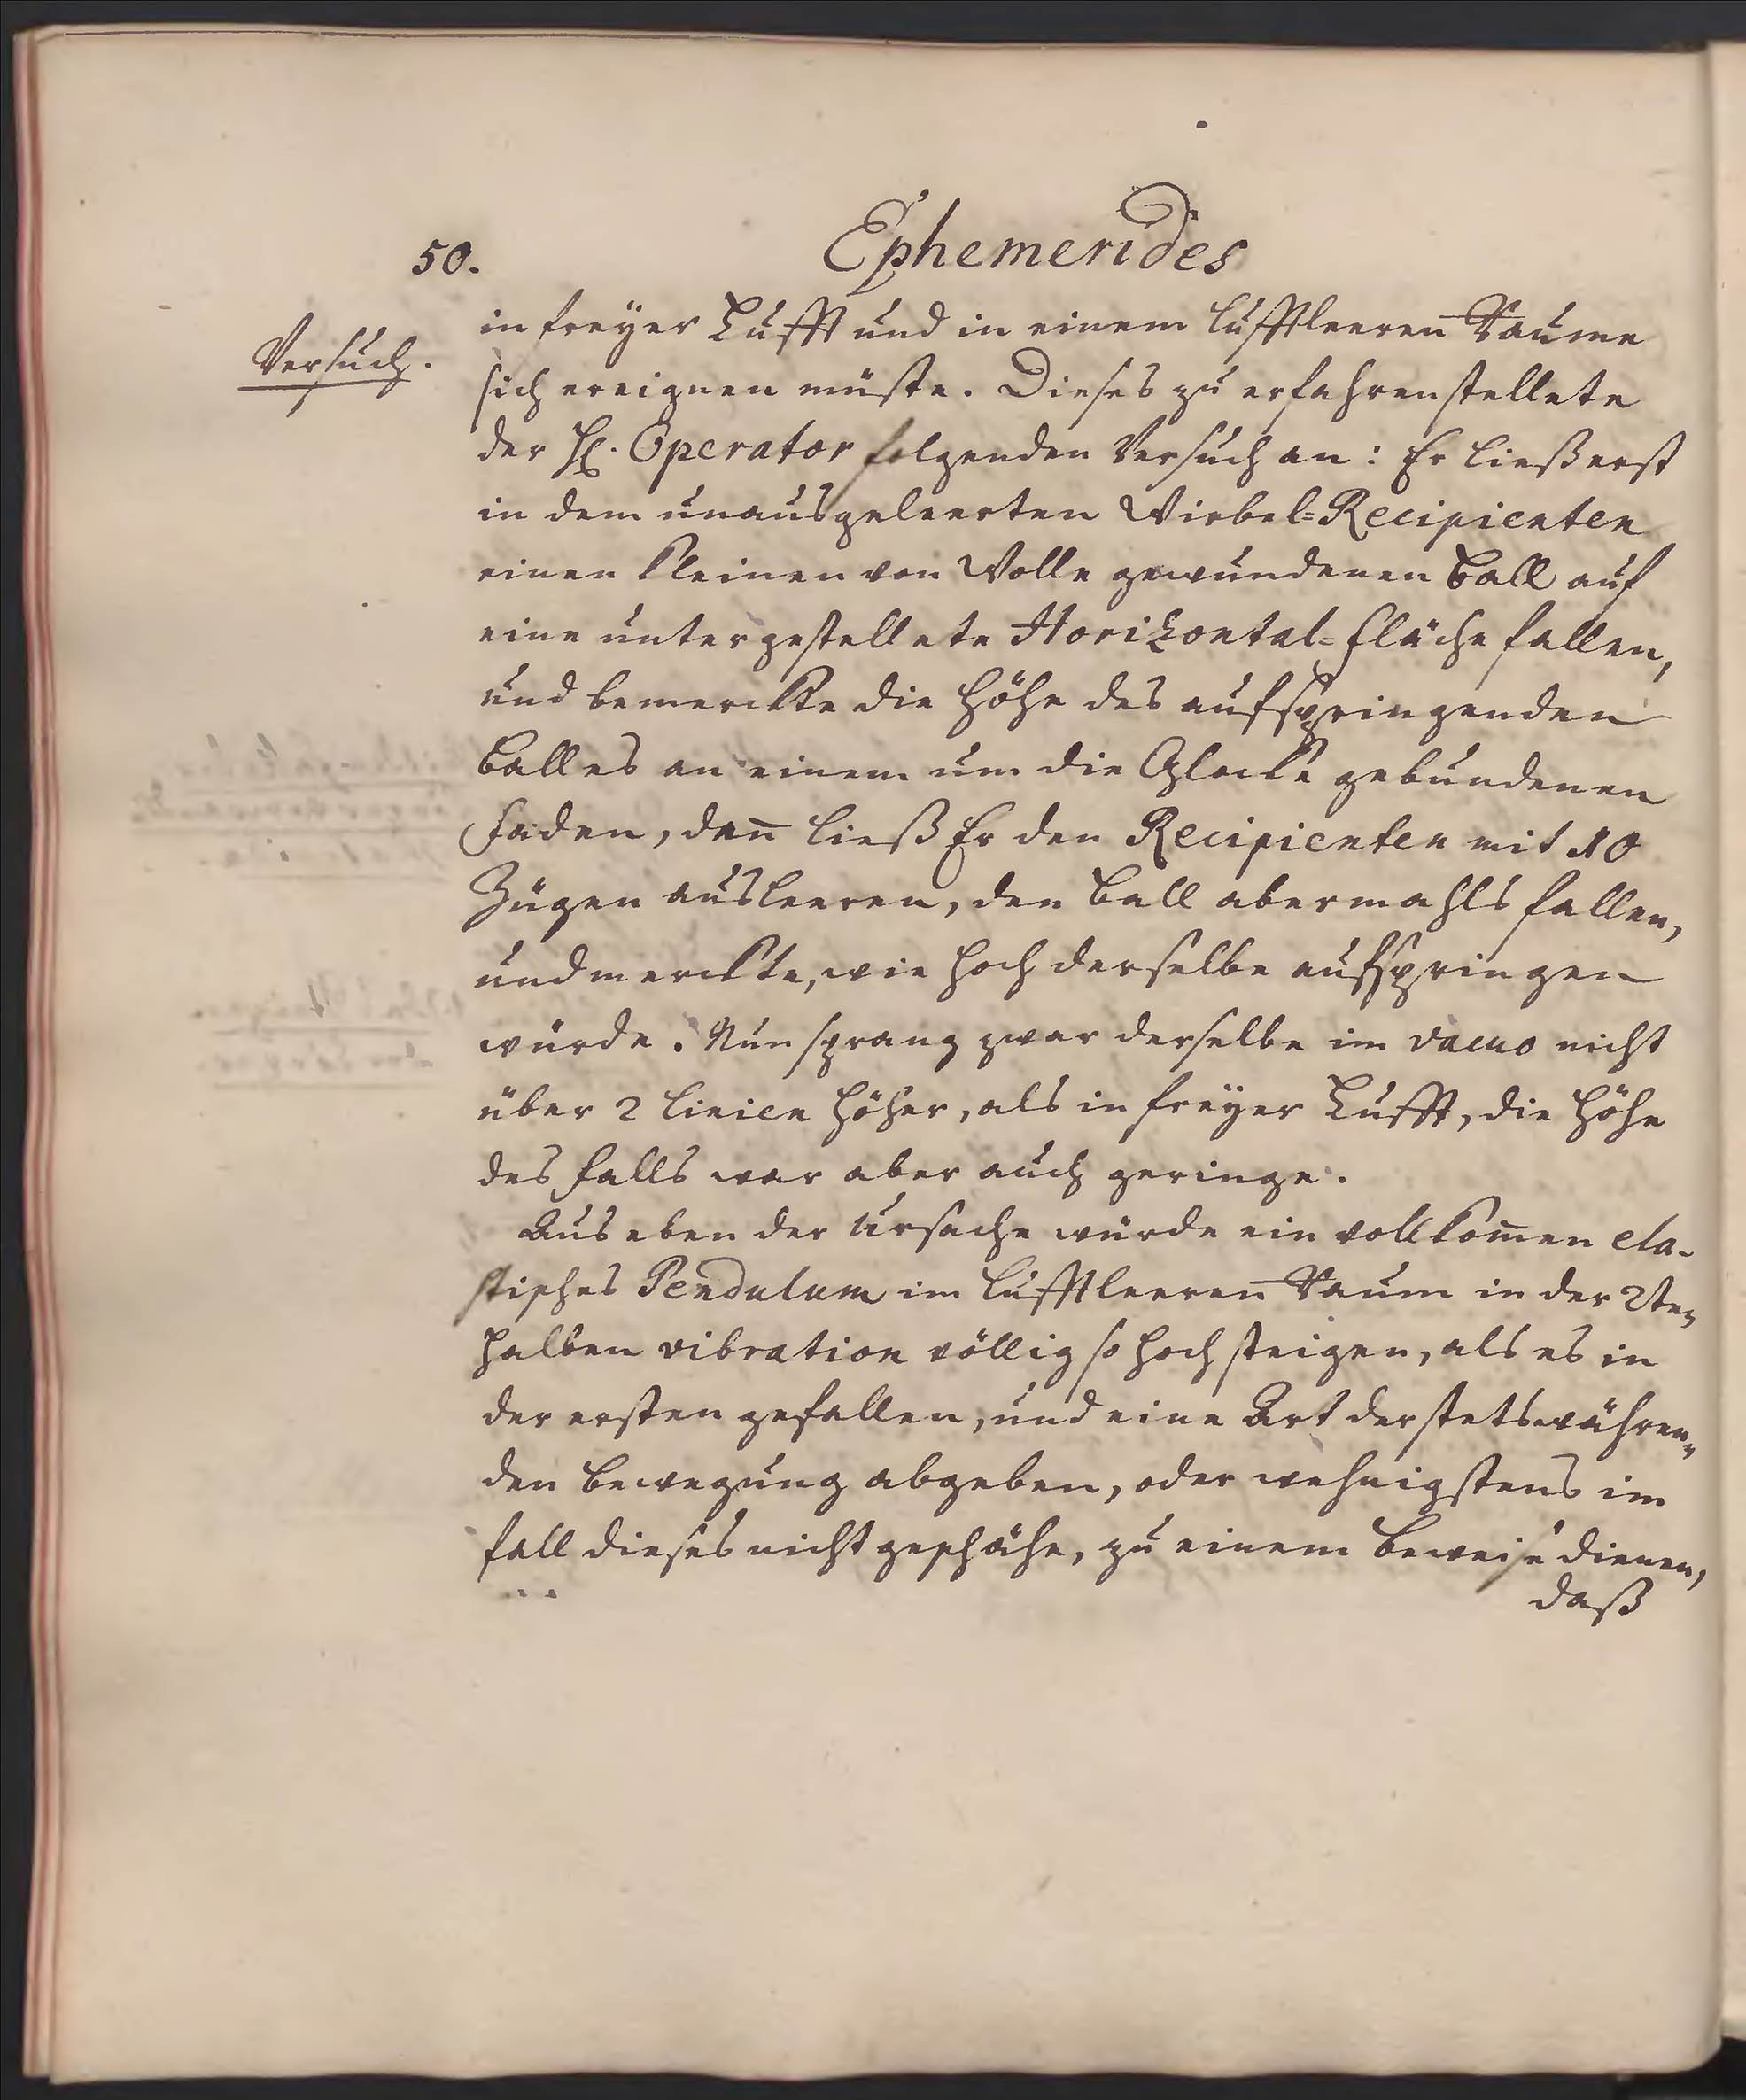 50.
Ephemerides
Versuch.
in freyer Lufft und in einem lufftleeren̄ Raume
sich ereignen müste. Dieses zu erfahren stellete
der H. Operator folgenden Versuch an: Er ließ erst
in dem unausgeleerten Wirbel=Recipienten
einen kleinen von Wolle gewundenen Ball auf
eine untergestellete Horizontal=fläche fallen,
und bemerckte die Höhe des aufspringenden
Balles an einem um die Glocke gebundenen
Faden, dan̄ ließ Er den Recipienten mit 10
Zügen ausleeren, den Ball abermahls fallen,
und merckte, wie hoch derselbe aufspringen
würde. Nun sprang zwar derselbe im vacuo nicht
über 2 linien höher, als in freyer Lufft, die Höhe
des Falls war aber auch geringe.
Aus eben der Ursache würde ein vollkom̄en ela-
stisches Pendulum im lufftleeren̄ Raum in der 2ten
halben vibration völlig so hoch steigen, als es in
der ersten gefallen, und eine Art der stetswähren„
den Bewegung abgeben, oder wehnigstens im
fall dieses nicht geschähe, zu einem Beweise dienen,
daß